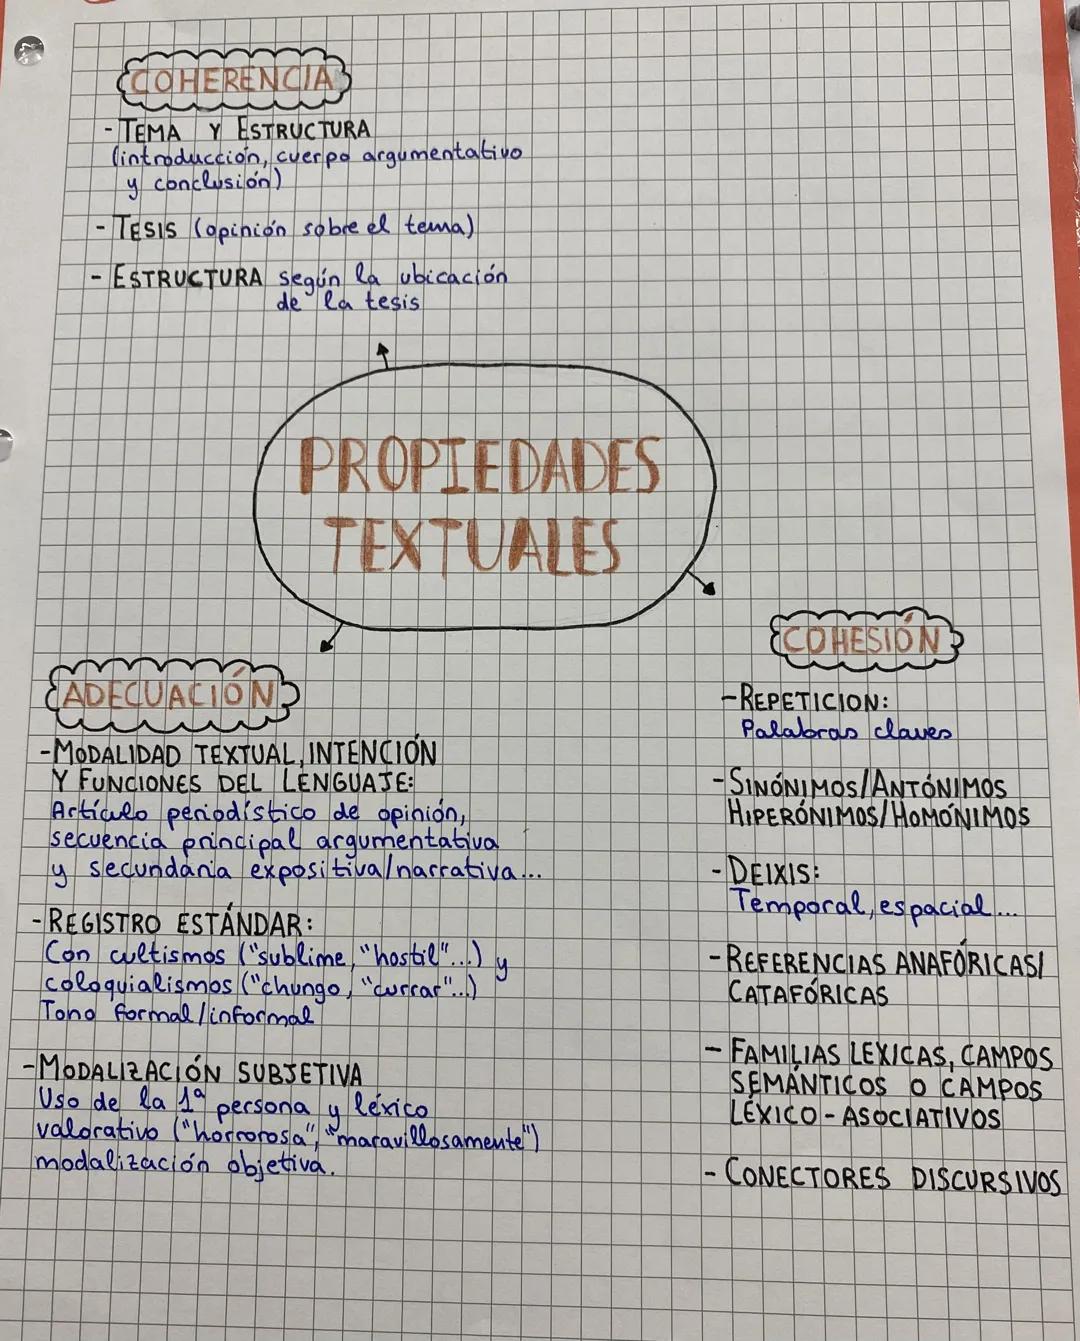 COHERENCIA
- TEMA Y ESTRUCTURA
(introducción, cuerpo argumentativo
y conclusión)
- TESIS (opinión sobre el tema)
- ESTRUCTURA según la ubicación
de la tesis
PROPIEDADES
TEXTUALES
ADECUACIÓN
- MODALIDAD TEXTUAL, INTENCIÓN
Y FUNCIONES DEL LENGUAJE:
Artículo periodístico de opinión,
secuencia principal argumentativa
y secundaria expositiva/narrativa...
- REGISTRO ESTÁNDAR:
Con cultismos ("sublime, "hostil"...) y
coloquialismos ("chungo, "currar"...)
Tono formal/informal
- MODALIZACIÓN SUBJETIVA
Uso de la 1ª persona y léxico
valorativo ("horrorosa", "maravillosamente")
modalización objetiva.
COHESIÓN
- REPETICION:
Palabras claves
- SINÓNIMOS/ANTÓNIMOS
HIPERÓNIMOS/HOMÓNIMOS
- DEIXIS:
Temporal, espacial...
- REFERENCIAS ANAFÓRICAS/
CATAFÓRICAS
- FAMILIAS LEXICAS, CAMPOS
SEMÁNTICOS O CAMPOS
LÉXICO - ASOCIATIVOS
- CONECTORES DISCURSIVOS